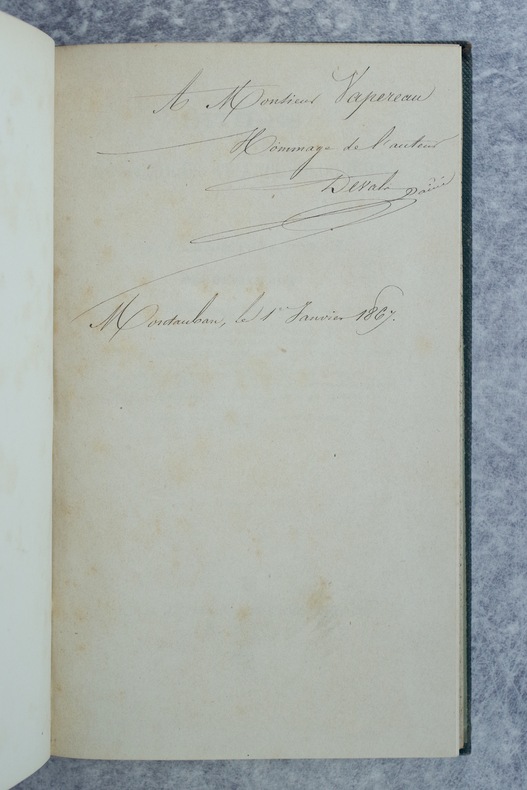 A Monsieur Vapereau
Hommage de l'auteur
Devals aîné
Montauban, le 1er Janvier 1867.